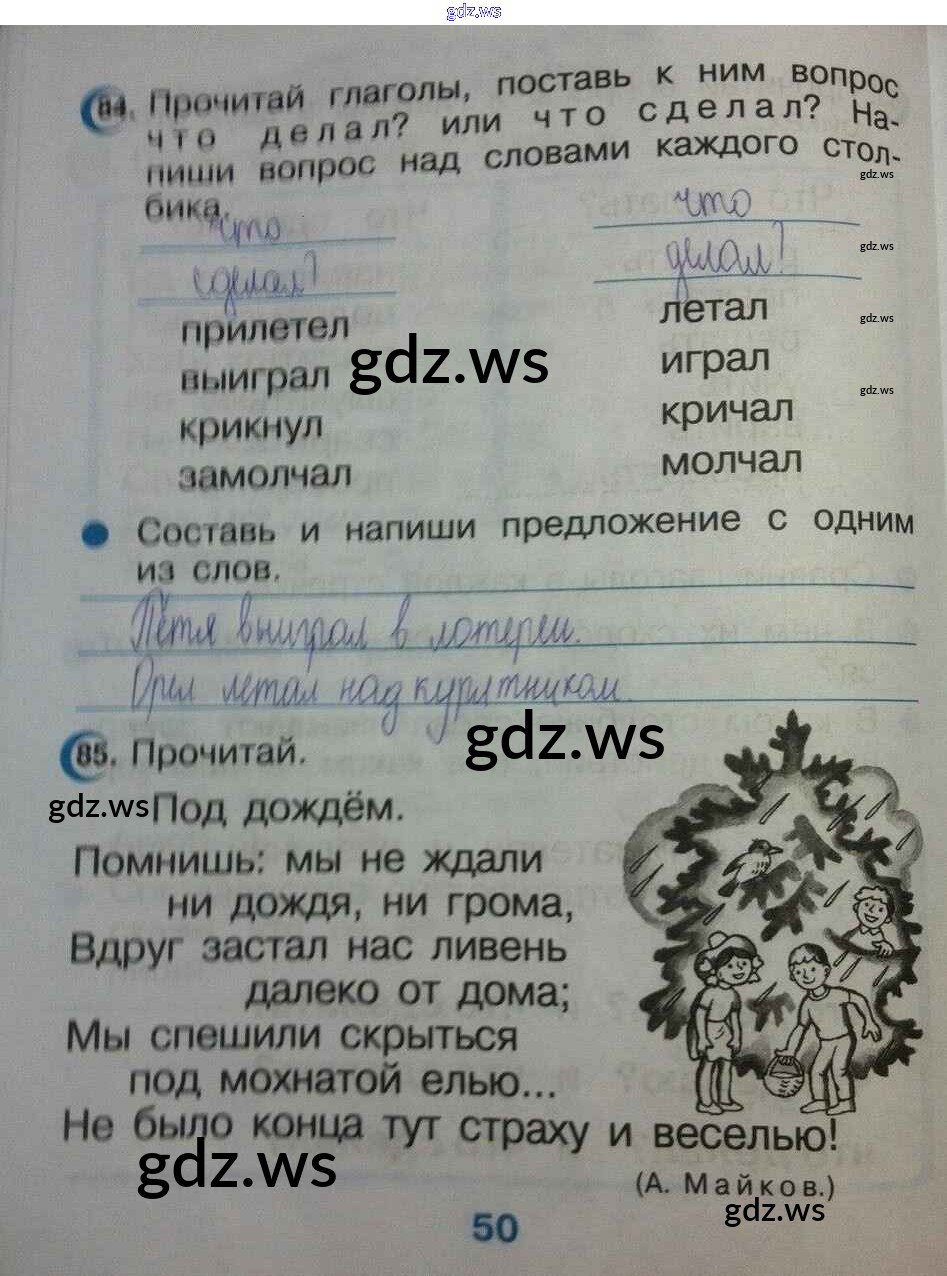 gdz.ws
84. Прочитай глаголы, поставь к ним вопрос
что делал? или что сделал? На-
пиши вопрос над словами каждого стол-
gdz.ws
бика.
что что
сделал? делал?
gdz.ws
прилетел летал
gdz.ws
выиграл играл
gdz.ws
gdz.ws
крикнул кричал
замолчал молчал
Составь и напиши предложение с одним
из слов.
Петя выиграл в лотереи.
Орел летал над курятником.
gdz.ws
85. Прочитай.
gdz.ws
Под дождём.
Помнишь: мы не ждали
ни дождя, ни грома,
Вдруг застал нас ливень
далеко от дома;
Мы спешили скрыться
под мохнатой елью...
Не было конца тут страху и веселью!
gdz.ws
(А. Майков.)
gdz.ws
50